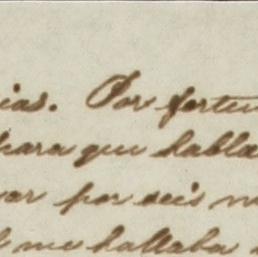 ias. Por fortun
para que habla
var por seis m
me hallaba